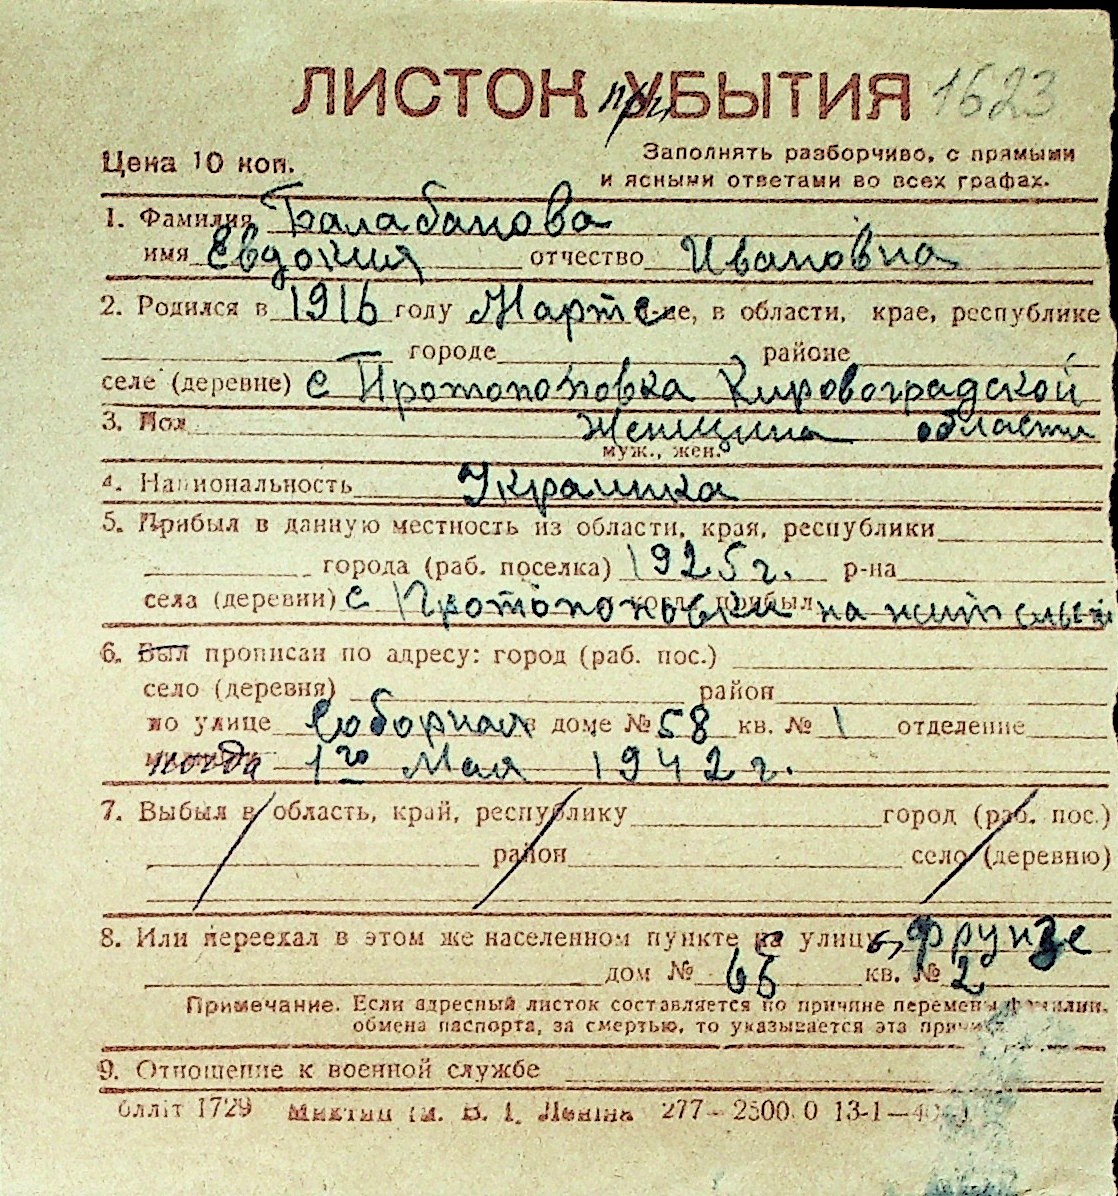 ЛИСТОК при УБЫТИЯ 1623
Цена 10 коп.
Заполнять разборчиво, с прямыми
и ясными ответами во всех графах.
1. Фамилия Балабанова
имя Евдокия отчество Ивановна
2. Родился в 1916 году Марте м-це, в области, крае, республике
городе районе
селе (деревне) с Протопоповка Кировоградской
3. Пол Женщина области
муж., жен.
4. Национальность Украинка
5. Прибыл в данную местность из области, края, республики
города (раб. поселка) 1925 г. р-на
села (деревни) с Протопоповки когда прибыл на жит
6. Был прописан по адресу: город (раб. пос.)
село (деревня) район
по улице Соборная в доме № 58 кв. № 1 отделение
когда 1го Мая 1942 г.
7. Выбыл в область, край, республику город (раб. пос.)
район село (деревню)
8. Или переехал в этом же населенном пункте на улицу Фрунзе
дом № 65 кв. № 2
Примечание. Если адресный листок составляется по причине перемены фамилии,
обмена паспорта, за смертью, то указывается эта причина
9. Отношение к военной службе
блліт 1729 ім. В. І. Леніна 277—2500.0 13-1—40